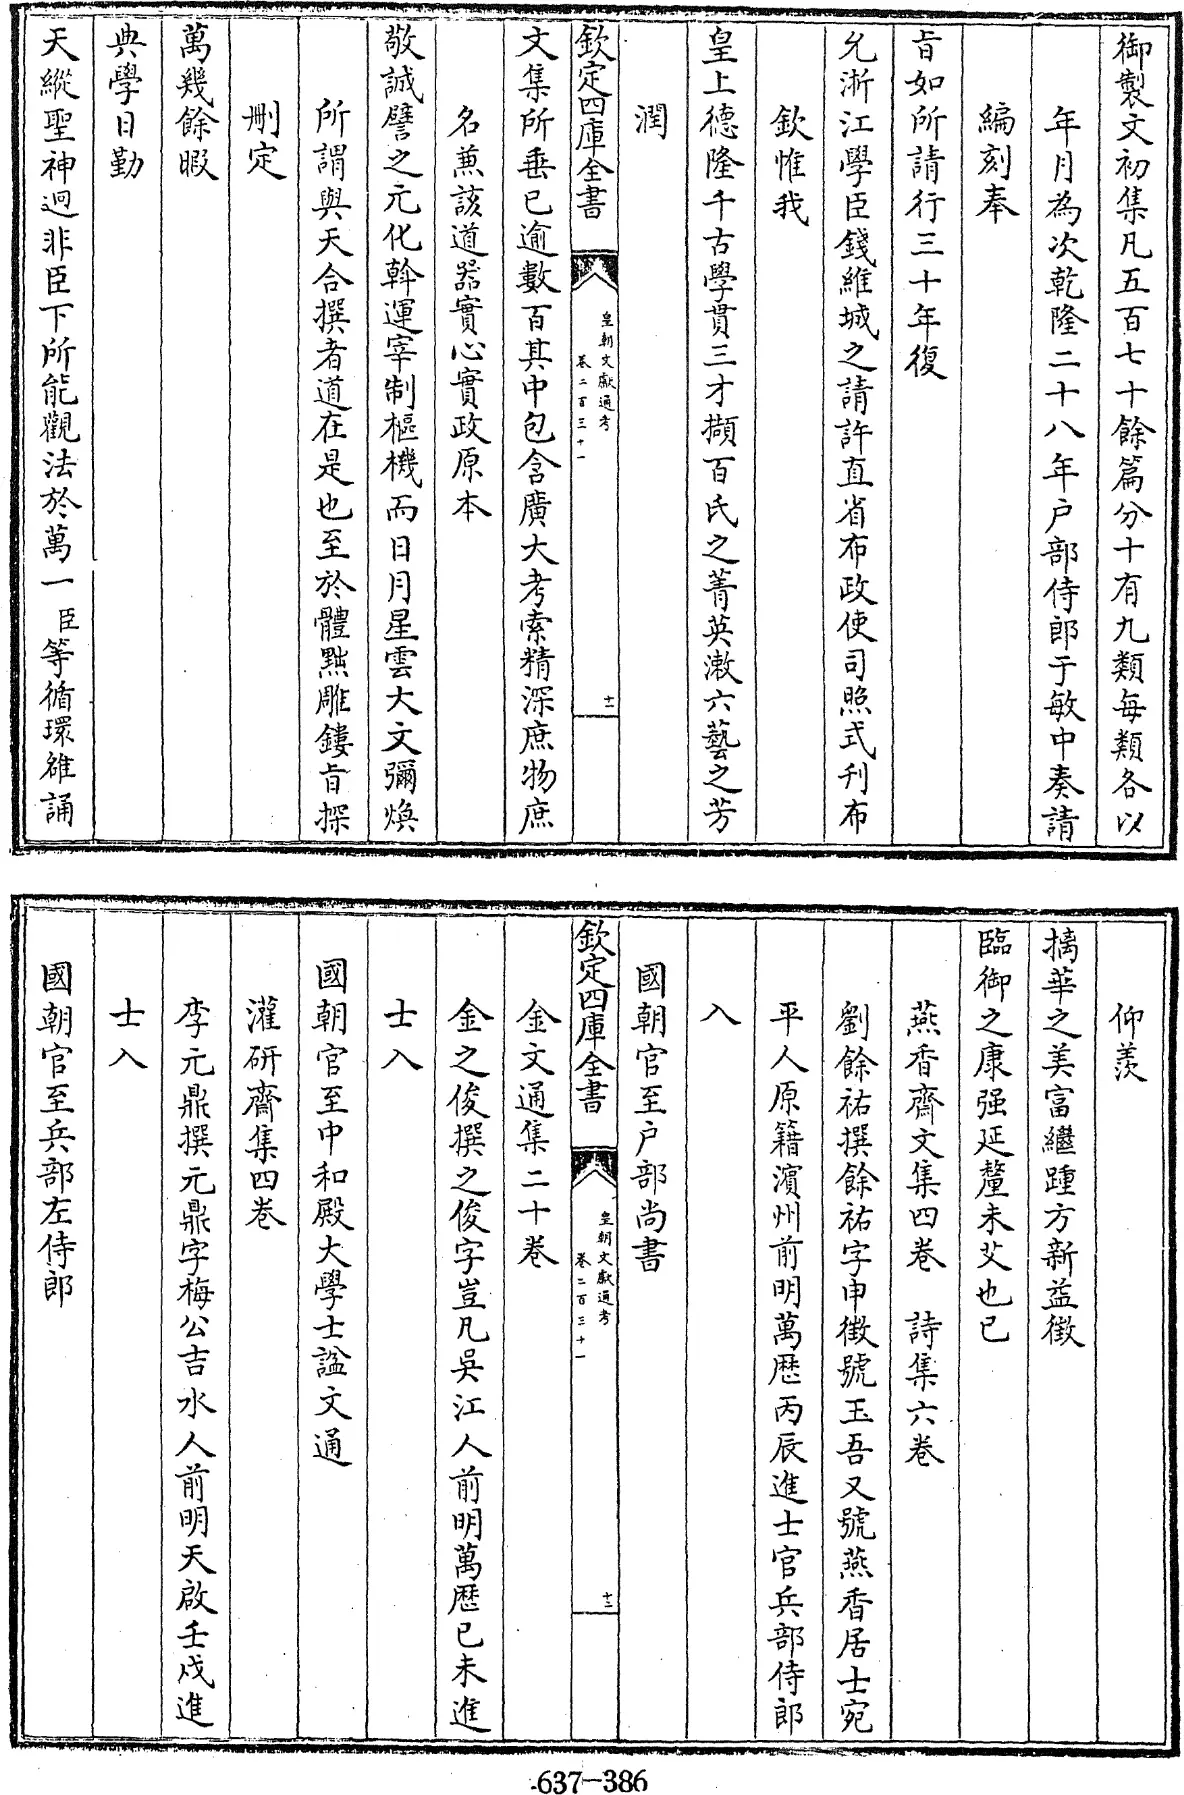 御製文初集凡五百七十餘篇分十有九類每類各以
年月為次乾隆二十八年户部侍郎于敏中奏請
編刻奉
旨如所請行三十年復
允浙江學臣錢維城之請許直省布政使司照式刋布
欽惟我
皇上德隆千古學貫三才擷百氏之菁英漱六藝之芳
潤
欽定四庫全書
皇朝文獻通考
卷二百三十一
十二
文集所垂已逾數百其中包含廣大考索精深庶物庶
名兼該道器實心實政原本
敬誠譬之元化斡運宰制樞機而日月星雲大文彌煥
所謂與天合撰者道在是也至於體黜雕鏤旨探
刪定
萬幾餘暇
典學日勤
天縱聖神迥非臣下所能觀法於萬一臣等循環雒誦
仰羨
摛華之美富繼踵方新益徵
臨御之康强延釐未艾也已
燕香齋文集四卷 詩集六卷
劉餘祐撰餘祐字申徵號玉吾又號燕香居士宛
平人原籍濱州前明萬歷丙辰進士官兵部侍郎
入
國朝官至户部尚書
欽定四庫全書
皇朝文獻通考
卷二百三十一
十三
金文通集二十卷
金之俊撰之俊字豈凡吳江人前明萬歷已未進
士入
國朝官至中和殿大學士諡文通
灌研齋集四卷
李元鼎撰元鼎字梅公吉水人前明天啟壬戌進
士入
國朝官至兵部左侍郎
637-386